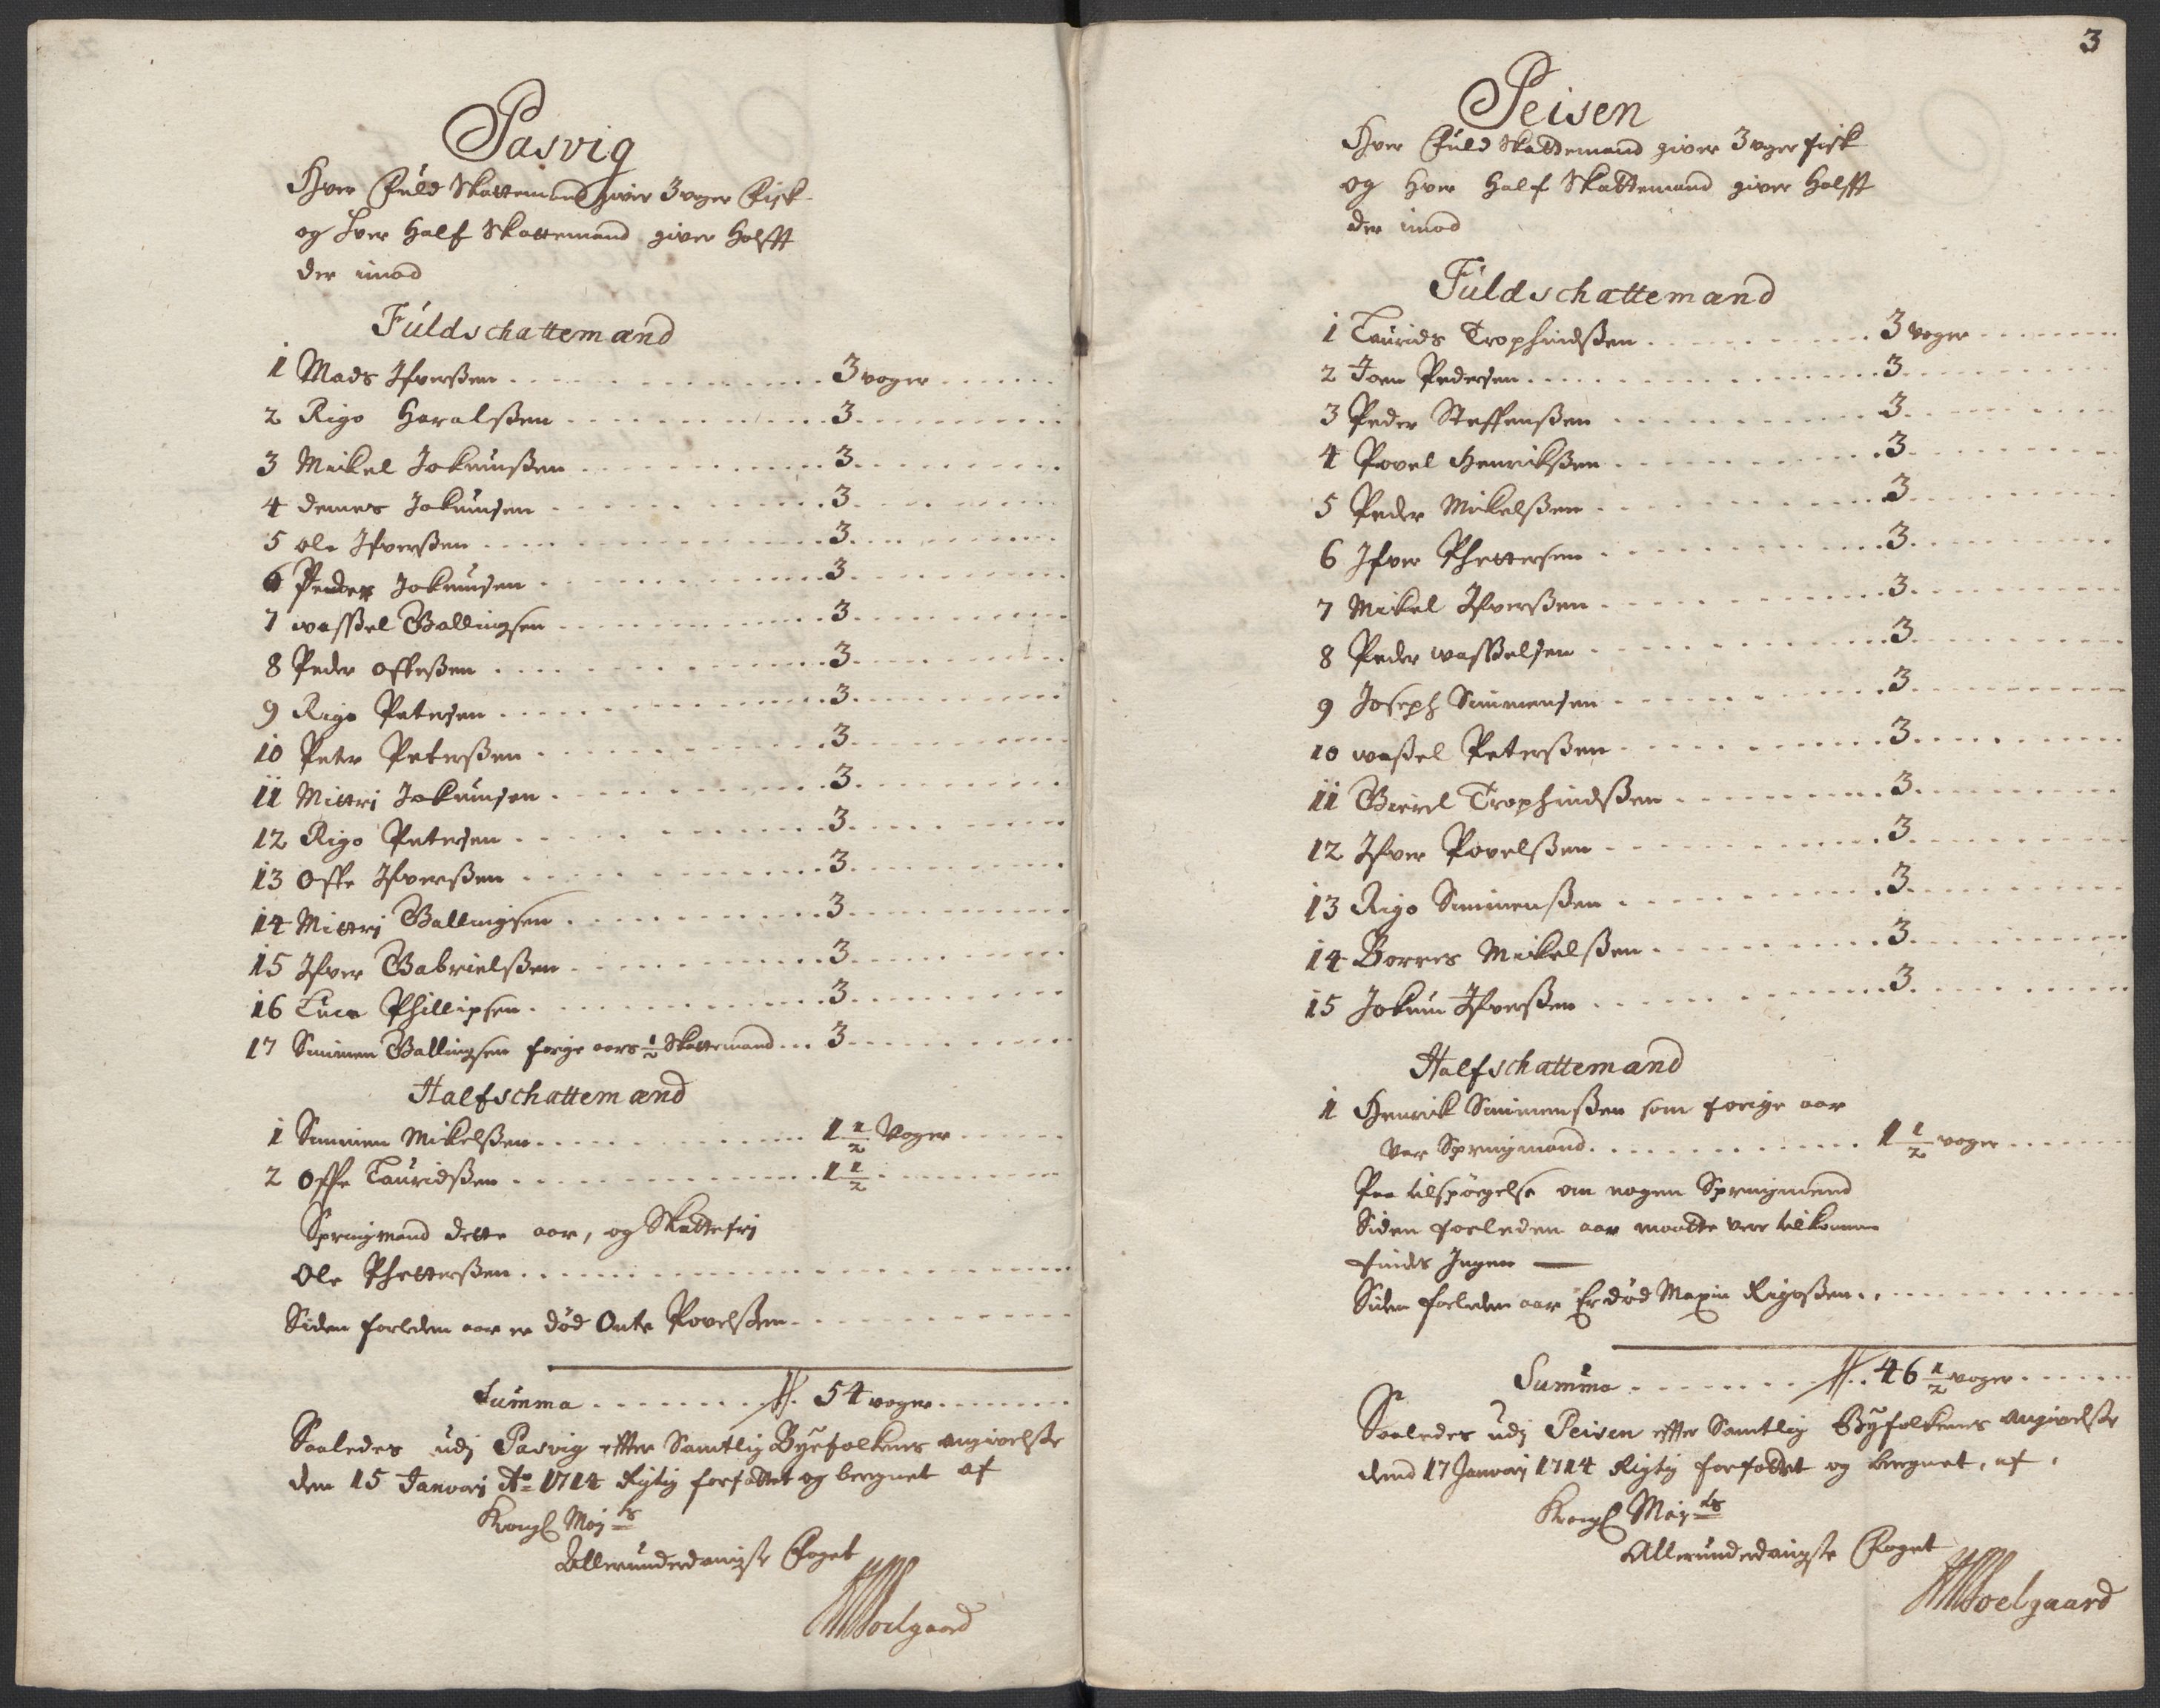 Pasvig
Hver Fuld Skattemand giver 3 voger Fisk
og hver Half Skattemand giver Halfft
der imod
Fuldschattemænd
1 Mads Ifverßen 3 voger
2 Rigo Haralßen 3
3 Mickel Jokumßen 3
4 Demes Jokumsen 3
5 Ole Ifverßen 3
6 Peder Jokumsen 3
7 wassel Gallingsen 3
8 Peder Offeßen 3
9 Rigo Petersen 3
10 Peter Peterßen 3
11 Mittri Jokumsen 3
12 Rigo Petersen 3
13 Offe Ifverßen 3
14 Mittrj Gallingsen 3
15 Ifver Gabrielßen 3
16 Luca Phillipsen 3
17 Simmen Gallingsen forige aars ½ Skattemand 3
Halfschattemænd
1 Simmen Mikelßen 1 ½ Voger
2 Offe Lauridßen 1 ½
Springmænd dette aar, og Skattefrj
Ole Phetterßen
Siden forleden aar er død Onte Povelßen
Summa 54 voger
Saaledes udj Pasvig effter Samtlig Byefolkenes angivelße
den 15 Janvarj Ao 1714 Rigtig forfattet og beregnet af
Kongl Maj ts
Allerunderdanigste Foget
Soelgaard
3
Peisen
Hver Fuld Skattemand giver 3 voger fisk
og hver Half Skattemand giver Halfft
der imod
Fuldschattemænd
1 Laurids Trophindßen 3 voger
2 Joen Pedersen 3
3 Peder Steffenßen 3
4 Povel Henrickßen 3
5 Peder Mickelßen 3
6 Ifver Phettersen 3
7 Mickel Ifverßen 3
8 Peder wasselsen 3
9 Joseph Simmensen 3
10 waßel Peterßen 3
11 Gavrel Trophindßen 3
12 Ifver Povelßen 3
13 Rigo Simmenßen 3
14 Borres Mickelßen 3
15 Jokum Ifverßen 3
Halfschattemænd
1 Henrick Simmenßen som forige aar
var Springmand 1 ½ voger
Paa tilspørgelse om nogen Springmænd
Siden forleden aar maatte vere tilkommen
findes Ingen
Siden forleden aar Er død Maxim Rigoßen
Summa 46 ½ voger
Saaledes udj Peisen effter Samtlig Byfolkenes angivelße
dend 17 Janvarj 1714 Rigtig forfattet og beregnet, af
Kongl Maj ts
Allerunderdanigste Foget
Soelgaard